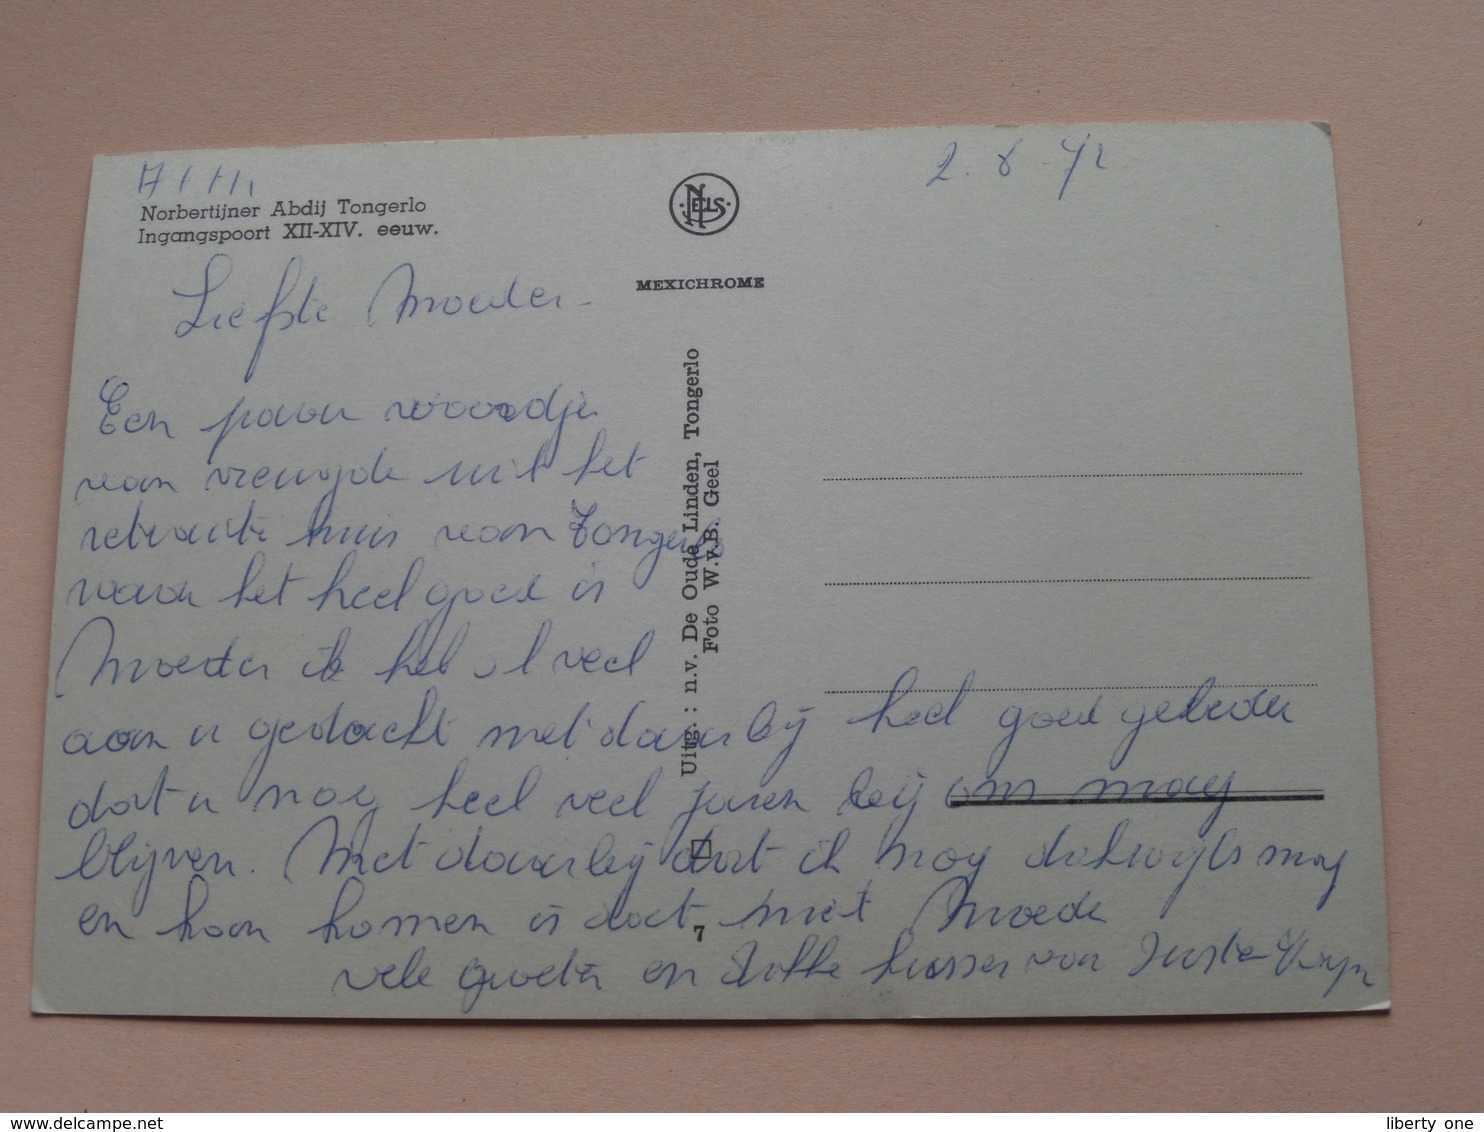 2.8.72
Norbertijner Abdij Tongerlo
Ingangspoort XII-XIV. eeuw.
NELS
MEXICHROME
Uitg. : n.v. De Oude Linden, Tongerlo
Foto W.v.B. Geel
Liefste Moeder -
Een paar woordje
van vreugde uit het
retraite huis van Tongerlo
waar het heel goed is
Moeder ik heb al veel
aan u gedacht met daarbij heel goed
dat u nog heel veel jaren bij ons mag
blijven. Met daarbij dat ik nog dikwijls mag
en kan komen is dat niet Moede
vele groeten en kussen van Zuster
7
www.delcampe.net
liberty one